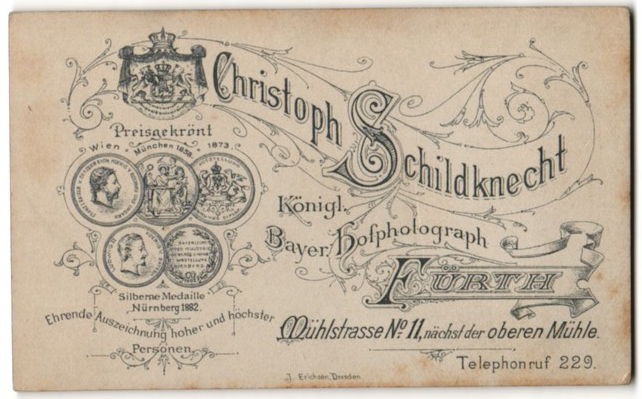 Christoph Schildknecht
Preisgekrönt
Wien München 1858. 1873
Königl.
Bayer. Hofphotograph
FÜRTH
Silberne Medaille
Nürnberg 1882.
Ehrende Auszeichnung hoher und höchster
Personen.
Mühlstrasse No. 11, nächst der oberen Mühle.
Telephonruf 229.
J. Erichsen, Dresden.